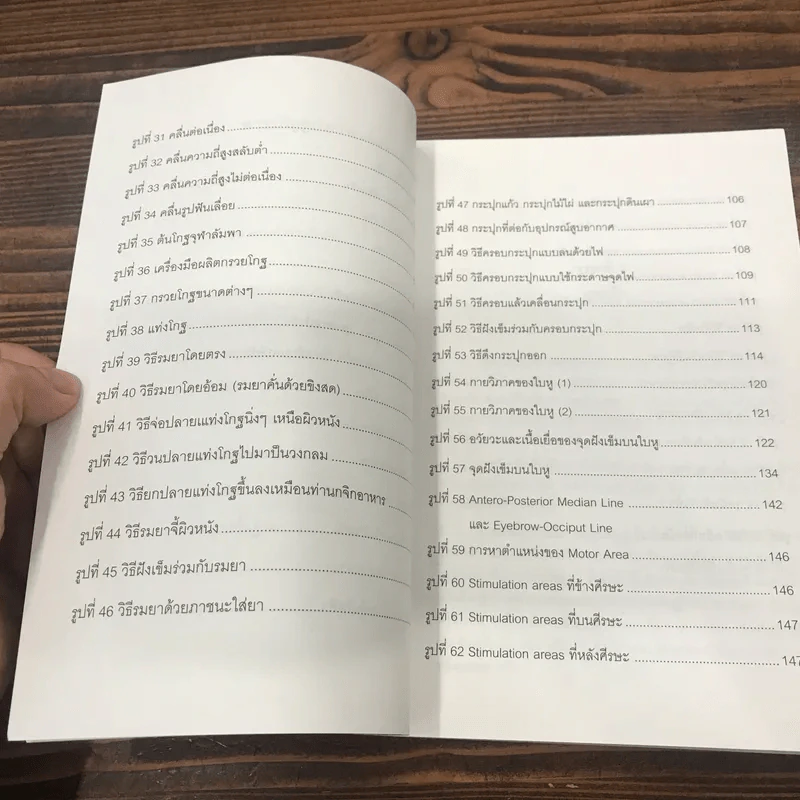 รูปที่ 31 คลื่นต่อเนื่อง
รูปที่ 32 คลื่นความถี่สูงสลับต่ำ
รูปที่ 33 คลื่นความถี่สูงไม่ต่อเนื่อง
รูปที่ 34 คลื่นรูปฟันเลื่อย
รูปที่ 35 ต้นโกฐจุฬาลัมพา
รูปที่ 36 เครื่องมือผลิตกรวยโกฐ
รูปที่ 37 กรวยโกฐขนาดต่างๆ
รูปที่ 38 แท่งโกฐ
รูปที่ 39 วิธีรมยาโดยตรง
รูปที่ 40 วิธีรมยาโดยอ้อม (รมยาคั่นด้วยขิงสด)
รูปที่ 41 วิธีจ่อปลายแท่งโกฐนิ่งๆ เหนือผิวหนัง
รูปที่ 42 วิธีวนปลายแท่งโกฐไปมาป็นวงกลม
รูปที่ 43 วิธียกปลายแท่งโกฐขึ้นลงเหมือนท่านกจิกอาหาร
รูปที่ 44 วิธีรมยาจี้ผิวหนัง
รูปที่ 45 วิธีฝังเข็มร่วมกับรมยา
รูปที่ 46 วิธีรมยาด้วยภาชนะใส่ยา
รูปที่ 47 กระปุกแก้ว กระปุกไม้ไผ่ และกระปุกดินเผา 106
รูปที่ 48 กระปุกที่ต่อกับอุปกรณ์สูบอากาศ 107
รูปที่ 49 วิธีครอบกระปุกแบบลนด้วยไฟ 108
รูปที่ 50 วิธีครอบกระปุกแบบใช้กระดาษจุดไฟ 109
รูปที่ 51 วิธีครอบแล้วเคลื่อนกระปุก 111
รูปที่ 52 วิธีฝังเข็มร่วมกับครอบกระปุก 113
รูปที่ 53 วิธีดึงกระปุกออก 114
รูปที่ 54 กายวิภาคของใบหู (1) 120
รูปที่ 55 กายวิภาคของใบหู (2) 121
รูปที่ 56 อวัยวะและเนื้อเยื่อของจุดฝังเข็มบนใบหู 122
รูปที่ 57 จุดฝังเข็มบนใบหู 134
รูปที่ 58 Antero-Posterior Median Line 142
และ Eyebrow-Occiput Line
รูปที่ 59 การหาตำแหน่งของ Motor Area 146
รูปที่ 60 Stimulation areas ที่ข้างศีรษะ 146
รูปที่ 61 Stimulation areas ที่บนศีรษะ 147
รูปที่ 62 Stimulation areas ที่หลังศีรษะ 147